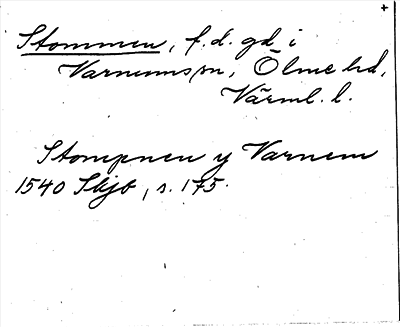 +
Stommen, f.d. gd i
Varnumssn, Ölme hd,
Värml. l.
Stompnen y Varnem
1540 Skjb, s. 175.